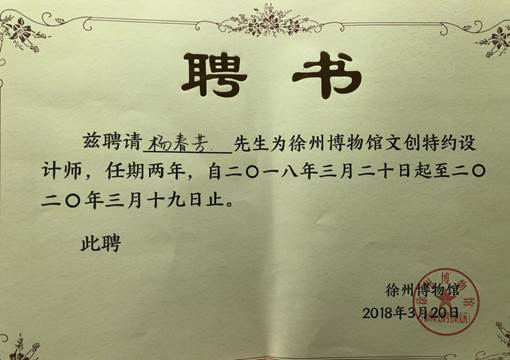 聘书
兹聘请 杨春芳 先生为徐州博物馆文创特约设
计师，任期两年，自二〇一八年三月二十日起至二〇
二〇年三月十九日止。
此聘
徐州博物馆
2018年3月20日
徐州博物馆